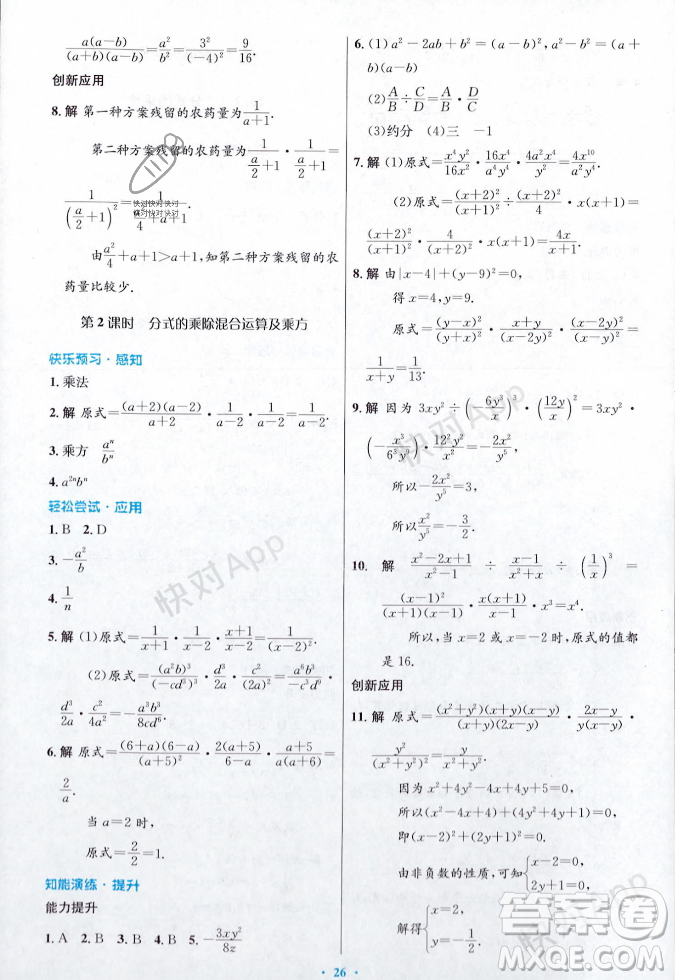 a(a-b)/(a+b)(a-b)=a²/b²=3²/(-4)²=9/16.
创新应用
8.解 第一种方案残留的农药量为1/(a+1).
第二种方案残留的农药量为1/(a/2+1)·1/(a/2+1)=
1/(a/2+1)²=1/(a²/4+a+1).
由a²/4+a+1>a+1,知第二种方案残留的农
药量比较少.
第2课时 分式的乘除混合运算及乘方
快乐预习·感知
1.乘法
2.解 原式=(a+2)(a-2)/(a+2)·1/(a-2)·1/(a-2)=1/(a-2).
3.乘方 aⁿ/bⁿ
4.a²ⁿbⁿ
轻松尝试·应用
1.B 2.D
3.-a²/b
4.1/n
5.解 (1)原式=1/(x+1)·1/(x-1)·(x+1)/(x-1)=1/(x-1)².
(2)原式=(a²b)³/(-cd³)³·d³/2a·c²/(2a)²=a⁶b³/(-c³d⁹)·
d³/2a·c²/4a²=-a³b³/8cd⁶.
6.解 原式=(6+a)(6-a)/(a+5)²·2(a+5)/(6-a)·(a+5)/a(a+6)=
2/a.
当a=2时,
原式=2/2=1.
知能演练·提升
能力提升
1.A 2.B 3.A 4.B 5.-3xy²/8z
6.(1)a²-2ab+b²=(a-b)²,a²-b²=(a+
b)(a-b)
(2)A/B÷C/D=A/B·D/C
(3)约分 (4)三 -1
7.解 (1)原式=x⁴y²/16x²·16x⁴/a⁴y⁴·4a²x⁴/y²=4x¹⁰/a²y⁴.
(2)原式=(x+2)²/(x+1)²÷(x+2)²/4·x(x+1)=
(x+2)²/(x+1)²·4/(x+2)²·x(x+1)=4x/(x+1).
8.解 由|x-4|+(y-9)²=0,
得x=4,y=9.
原式=(y-x)²/(x-y)²·(x+y)/1·1/(x+y)²=
1/(x+y)=1/13.
9.解 因为3xy²÷(-6y³/x)³·(12y/x)²=3xy²·
(-x³/6³y⁹)·12²y²/x²=-2x²/y⁵,
所以-2x²/y⁵=3,
所以x²/y⁵=-3/2.
10.解 (x²-2x+1)/(x²-1)÷(x-1)/(x²+x)÷(1/x)³=
(x-1)²/(x+1)(x-1)·x(x+1)/(x-1)·x³=x⁴.
所以,当x=2或x=-2时,原式的值都
是16.
创新应用
11.解 原式=(x²+y²)(x+y)(x-y)/(x+y)(2x-y)·(2x-y)/(x-y)·
y²/y(x²+y²)=y.
因为x²+4y²-4x+4y+5=0,
所以x²-4x+4+4y²+4y+1=0,
即(x-2)²+(2y+1)²=0,
由非负数的性质,可知{x-2=0,
2y+1=0,
解得{x=2,
26
快对快对快对
快对快对快对
快对App
快对App
快对App
答案圈